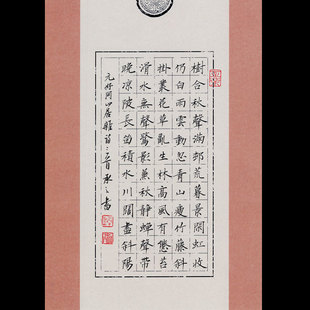 樹合秋聲滿邨荒暮景閑虹收
仍白雨雲動忽青山瘦竹藤斜
掛叢花草亂生林高風有態苔
滑水無聲鷺影兼秋靜蟬聲帶
晚涼陂長留積水川闊盡斜陽
元好問山居雜詩三首承之書